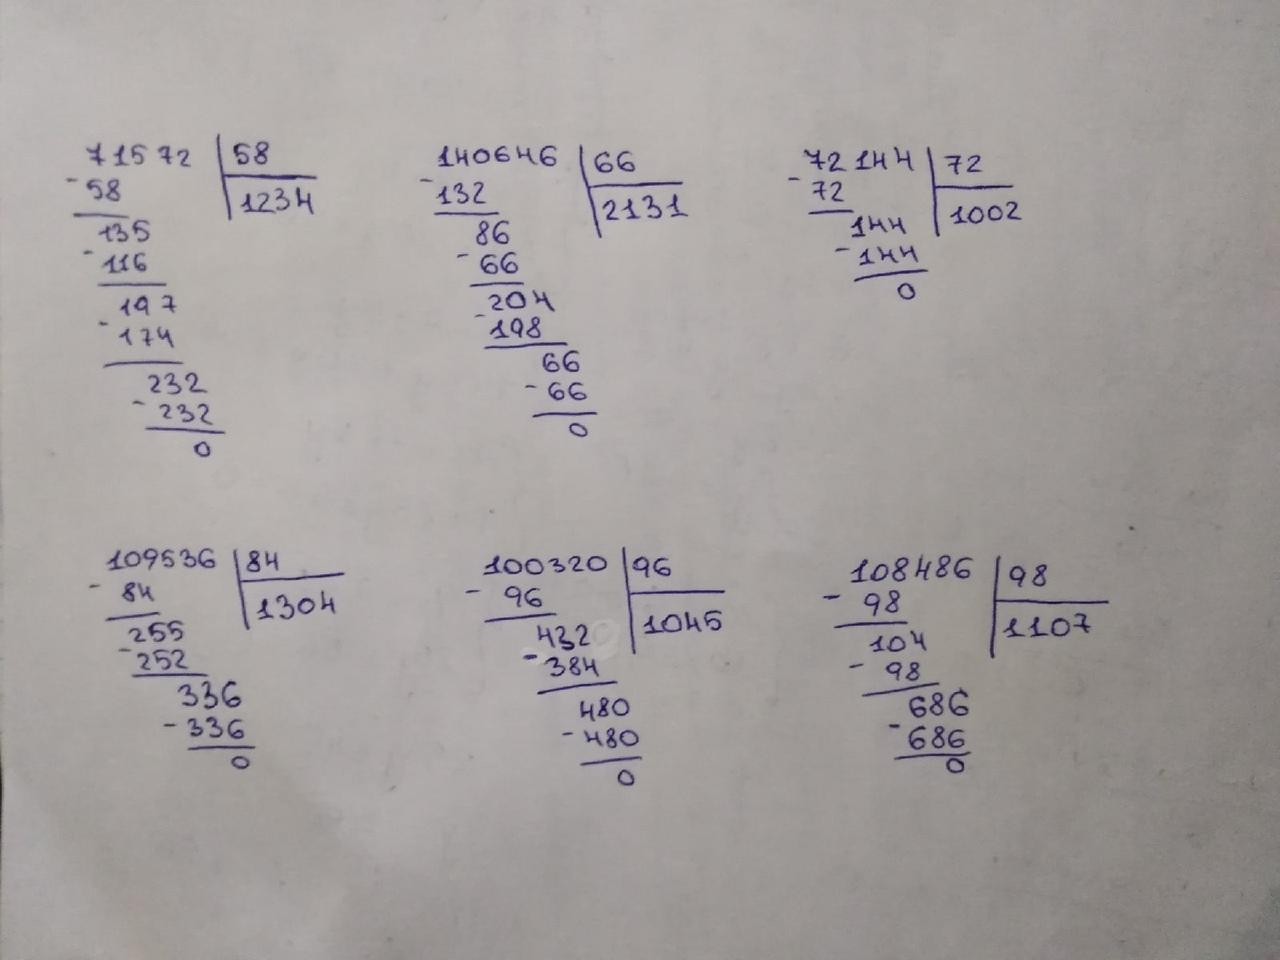 71572 58
- 58 1234
135
- 116
197
- 174
232
- 232
0
140646 66
- 132 2131
86
- 66
204
- 198
66
- 66
0
72144 72
- 72 1002
144
- 144
0
109536 84
- 84 1304
255
- 252
336
- 336
0
100320 96
- 96 1045
432
- 384
480
- 480
0
108486 98
- 98 1107
104
- 98
686
- 686
0